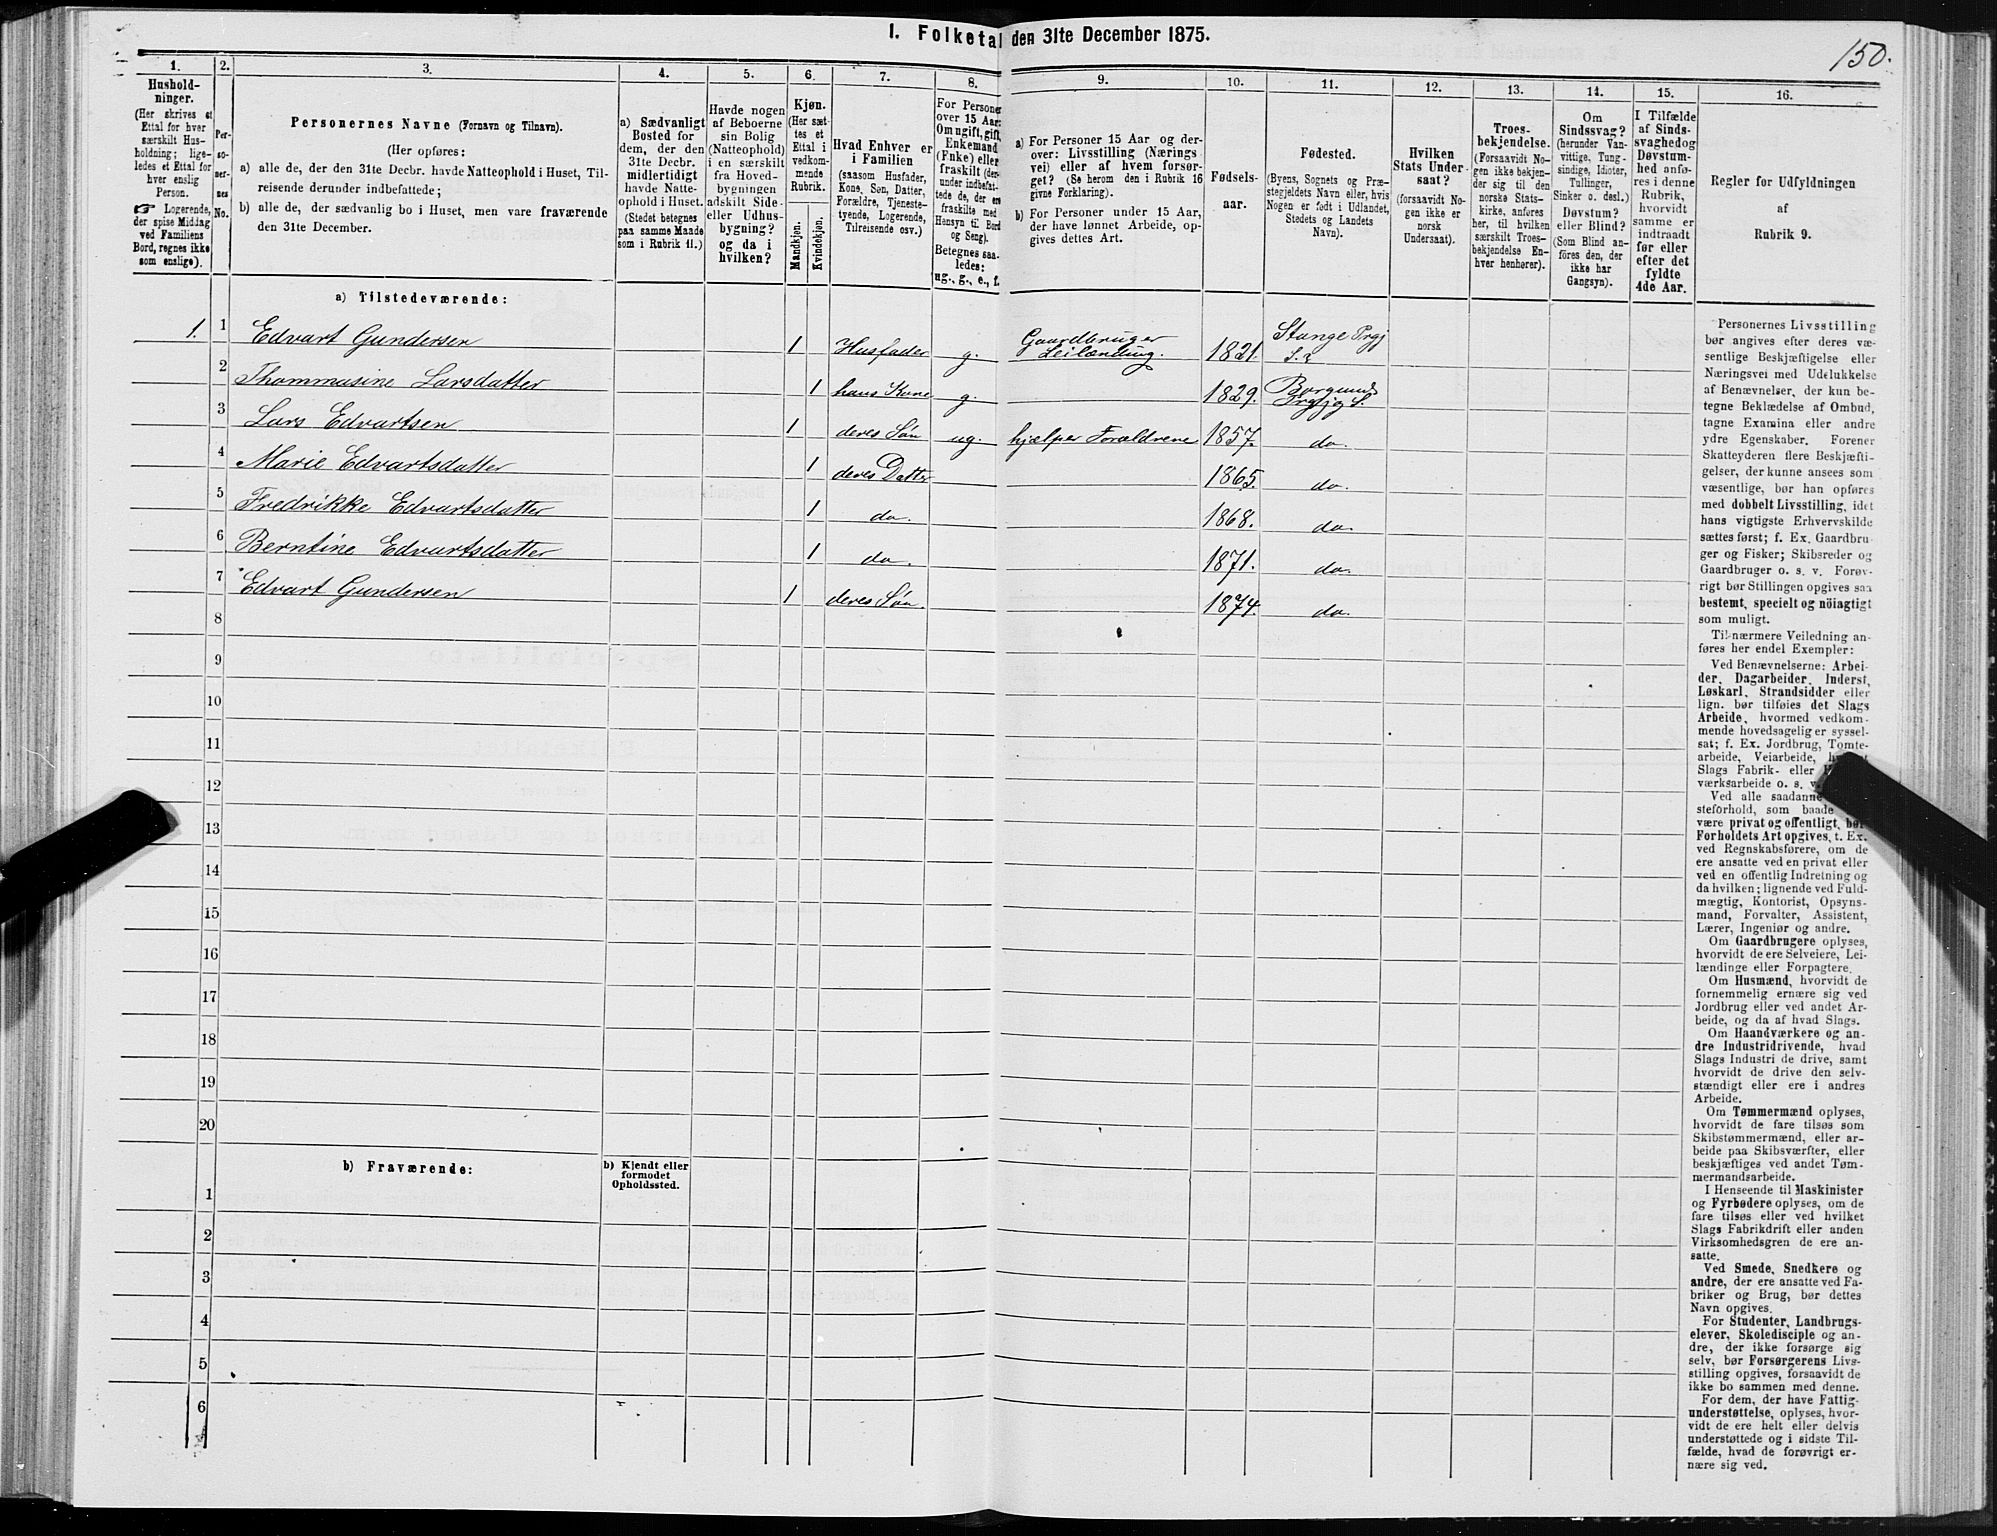 150.
I. Folketal den 31te December 1875.
1. 2. 3. 4. 5. 6. 7. 8. 9. 10. 11. 12. 13. 14. 15. 16.
Hushold-
ninger.
(Her skrives et
Ettal for hver
særskilt Hus-
holdning; lige-
ledes et Ettal for
hver enslig
Person.
☞ Logerende,
der spise Middag
ved Familiens
Bord, regnes ikke
som enslige).
Per-
so-
ner-
nes
No.
Personernes Navne (Fornavn og Tilnavn).
(Her opføres:
a) alle de, der den 31te Decbr. havde Natteophold i Huset, Til-
reisende derunder indbefattede;
b) alle de, der sædvanlig bo i Huset, men vare fraværende
den 31te December.
a) Sædvanligt
Bosted for
dem, der den
31te Decbr.
midlertidigt
havde Natte-
ophold i Huset.
(Stedet betegnes
paa samme Maade
som i Rubrik 11.)
Havde nogen
af Beboerne
sin Bolig
(Natteophold)
i en særskilt
fra Hoved-
bygningen
adskilt Side-
eller Udhus-
bygning?
og da i
hvilken?
Kjøn.
(Her sæt-
tes et
Ettal i
vedkom-
mende
Rubrik.
Mandkjøn.
Kvindekjøn.
Hvad Enhver er
i Familien
(saasom Husfader,
Kone, Søn, Datter,
Forældre, Tjeneste-
tyende, Logerende,
Tilreisende osv.)
For Personer
over 15 Aar:
Om ugift, gift,
Enkemand
(Enke) eller
fraskilt (der-
under indbefat-
tede de, der ere
fraskilte med
Hensyn til Bord
og Seng).
Betegnes saa-
ledes:
ug., g., e., f.
a) For Personer 15 Aar og der-
over: Livsstilling (Nærings
vei) eller af hvem forsør-
get? (Se herom den i Rubrik 16
givne Forklaring).
b) For Personer under 15 Aar,
der have lønnet Arbeide, op-
gives dettes Art.
Fødsels-
aar.
Fødested.
(Byens, Sognets og Præ-
stegjeldets Navn eller, hvis
Nogen er født i Udlandet,
Stedets og Landets
Navn).
Hvilken
Stats Under
saat?
(forsaavidt No-
gen ikke er
norsk
Undersaat).
Troes-
bekjendelse.
(Forsaavidt No-
gen ikke bekjen-
der sig til den
norske Stats-
kirke, anføres
her, til hvilken
særskilt Troes-
bekjendelse En-
hver henhører).
Om
Sindssvag?
(herunder Van-
vittige, Tung-
sindige, Idioter,
Tullinger,
Sinker o. desl.)
Døvstum?
eller Blind?
(Som Blind an-
føres den, der
ikke har
Gangsyn).
I Tilfælde
af Sinds-
svaghed og
Døvstum-
hed anfø-
res i denne
Rubrik,
hvorvidt
samme er
indtraadt
før eller
efter det
fyldte
4de Aar.
Regler for Udfyldningen
af
Rubrik 9.
a) Tilstedeværende:
1. 1 Edvart Gundersen 1 Husfader g. Gaardbruger Leilænding. 1821. Stange Prgj S.
2 Thommasine Larsdatter 1 hans Kone g. 1829. Borgunds Prgjg S.
3 Lars Edvartsen 1 deres Søn ug. hjælper Forældrene 1857. do.
4 Marie Edvartsdatter 1 deres Datter 1865. do.
5 Fredrikke Edvartsdatter 1 do. 1868. do.
6 Berntine Edvartsdatter 1 do. 1871. do.
7 Edvart Gundersen 1 deres Søn. 1874. do.
8
9
10
11
12
13
14
15
16
17
18
19
20
b) Fraværende:
b) Kjendt eller
formodet
Opholdssted.
1
2
3
4
5
6
Personernes Livsstilling
bør angives efter deres væ-
sentlige Beskjæftigelse eller
Næringsvei med Udelukkelse
af Benævnelser, der kun be-
tegne Beklædelse af Ombud,
tagne Examina eller andre
ydre Egenskaber. Forener
Skatteyderen flere Beskjæfti-
gelser, der kunne ansees som
væsentlige, bør han opføres
med dobbelt Livsstilling, idet
hans vigtigste Erhvervskilde
sættes først; f. Ex. Gaardbru-
ger og Fisker; Skibsreder og
Gaardbruger o. s. v. Forøv-
rigt bør Stillingen opgives saa
bestemt, specielt og nöiagtigt
som muligt.
Til nærmere Veiledning an-
føres her endel Exempler:
Ved Benævnelserne: Arbei-
der, Dagarbeider, Inderst,
Løskarl, Strandsidder eller
lign. bør tilføies det Slags
Arbeide, hvormed vedkom-
mende hovedsagelig er syssel-
sat; f. Ex. Jordbrug, Tomte-
arbeide, Veiarbeide,
Slags Fabrik- eller
værksarbeide o. s. v.
Ved alle saadanne
steforhold, som baade
være privat og offentligt, bør
Forholdets Art opgives, t. Ex.
ved Regnskabsførere, om de
ere ansatte ved en privat eller
ved en offentlig Indretning og
da hvilken; lignende ved Fuld-
mægtig, Kontorist, Opsyns-
mand, Forvalter, Assistent,
Lærer, Ingeniør og andre.
Om Gaardbrugere oplyses,
hvorvidt de ere Selveiere, Lei-
lændinge eller Forpagtere.
Om Husmænd, hvorvidt de
fornemmelig ernære sig ved
Jordbrug eller ved andet Ar-
beide, og da af hvad Slags.
Om Haandværkere og an-
dre Industridrivende, hvad
Slags Industri de drive, samt
hvorvidt de drive den selv-
stændigt eller ere i andres
Arbeide.
Om Tømmermænd oplyses,
hvorvidt de fare tilsøs som
Skibstømmermænd, eller ar-
beide paa Skibsværfter, eller
beskjæftiges ved andet Tøm-
mermandsarbeide.
I Henseende til Maskinister
og Fyrbødere oplyses, om de
fare tilsøs eller ved hvilket
Slags Fabrikdrift eller anden
Virksomhedsgren de ere an-
satte.
Ved Smede, Snedkere og
andre, der ere ansatte ved Fa-
briker og Brug, bør dettes
Navn opgives.
For Studenter, Landbrugs-
elever, Skoledisciple og an-
dre, der ikke forsørge sig
selv, bør Forsørgerens Livs-
stilling opgives, forsaavidt de
ikke bo sammen med denne.
For dem, der have Fattig-
understøttelse, oplyses, hvor-
vidt de ere helt eller delvis
understøttede og i sidste Til-
fælde, hvad de forøvrigt er-
nære sig ved.